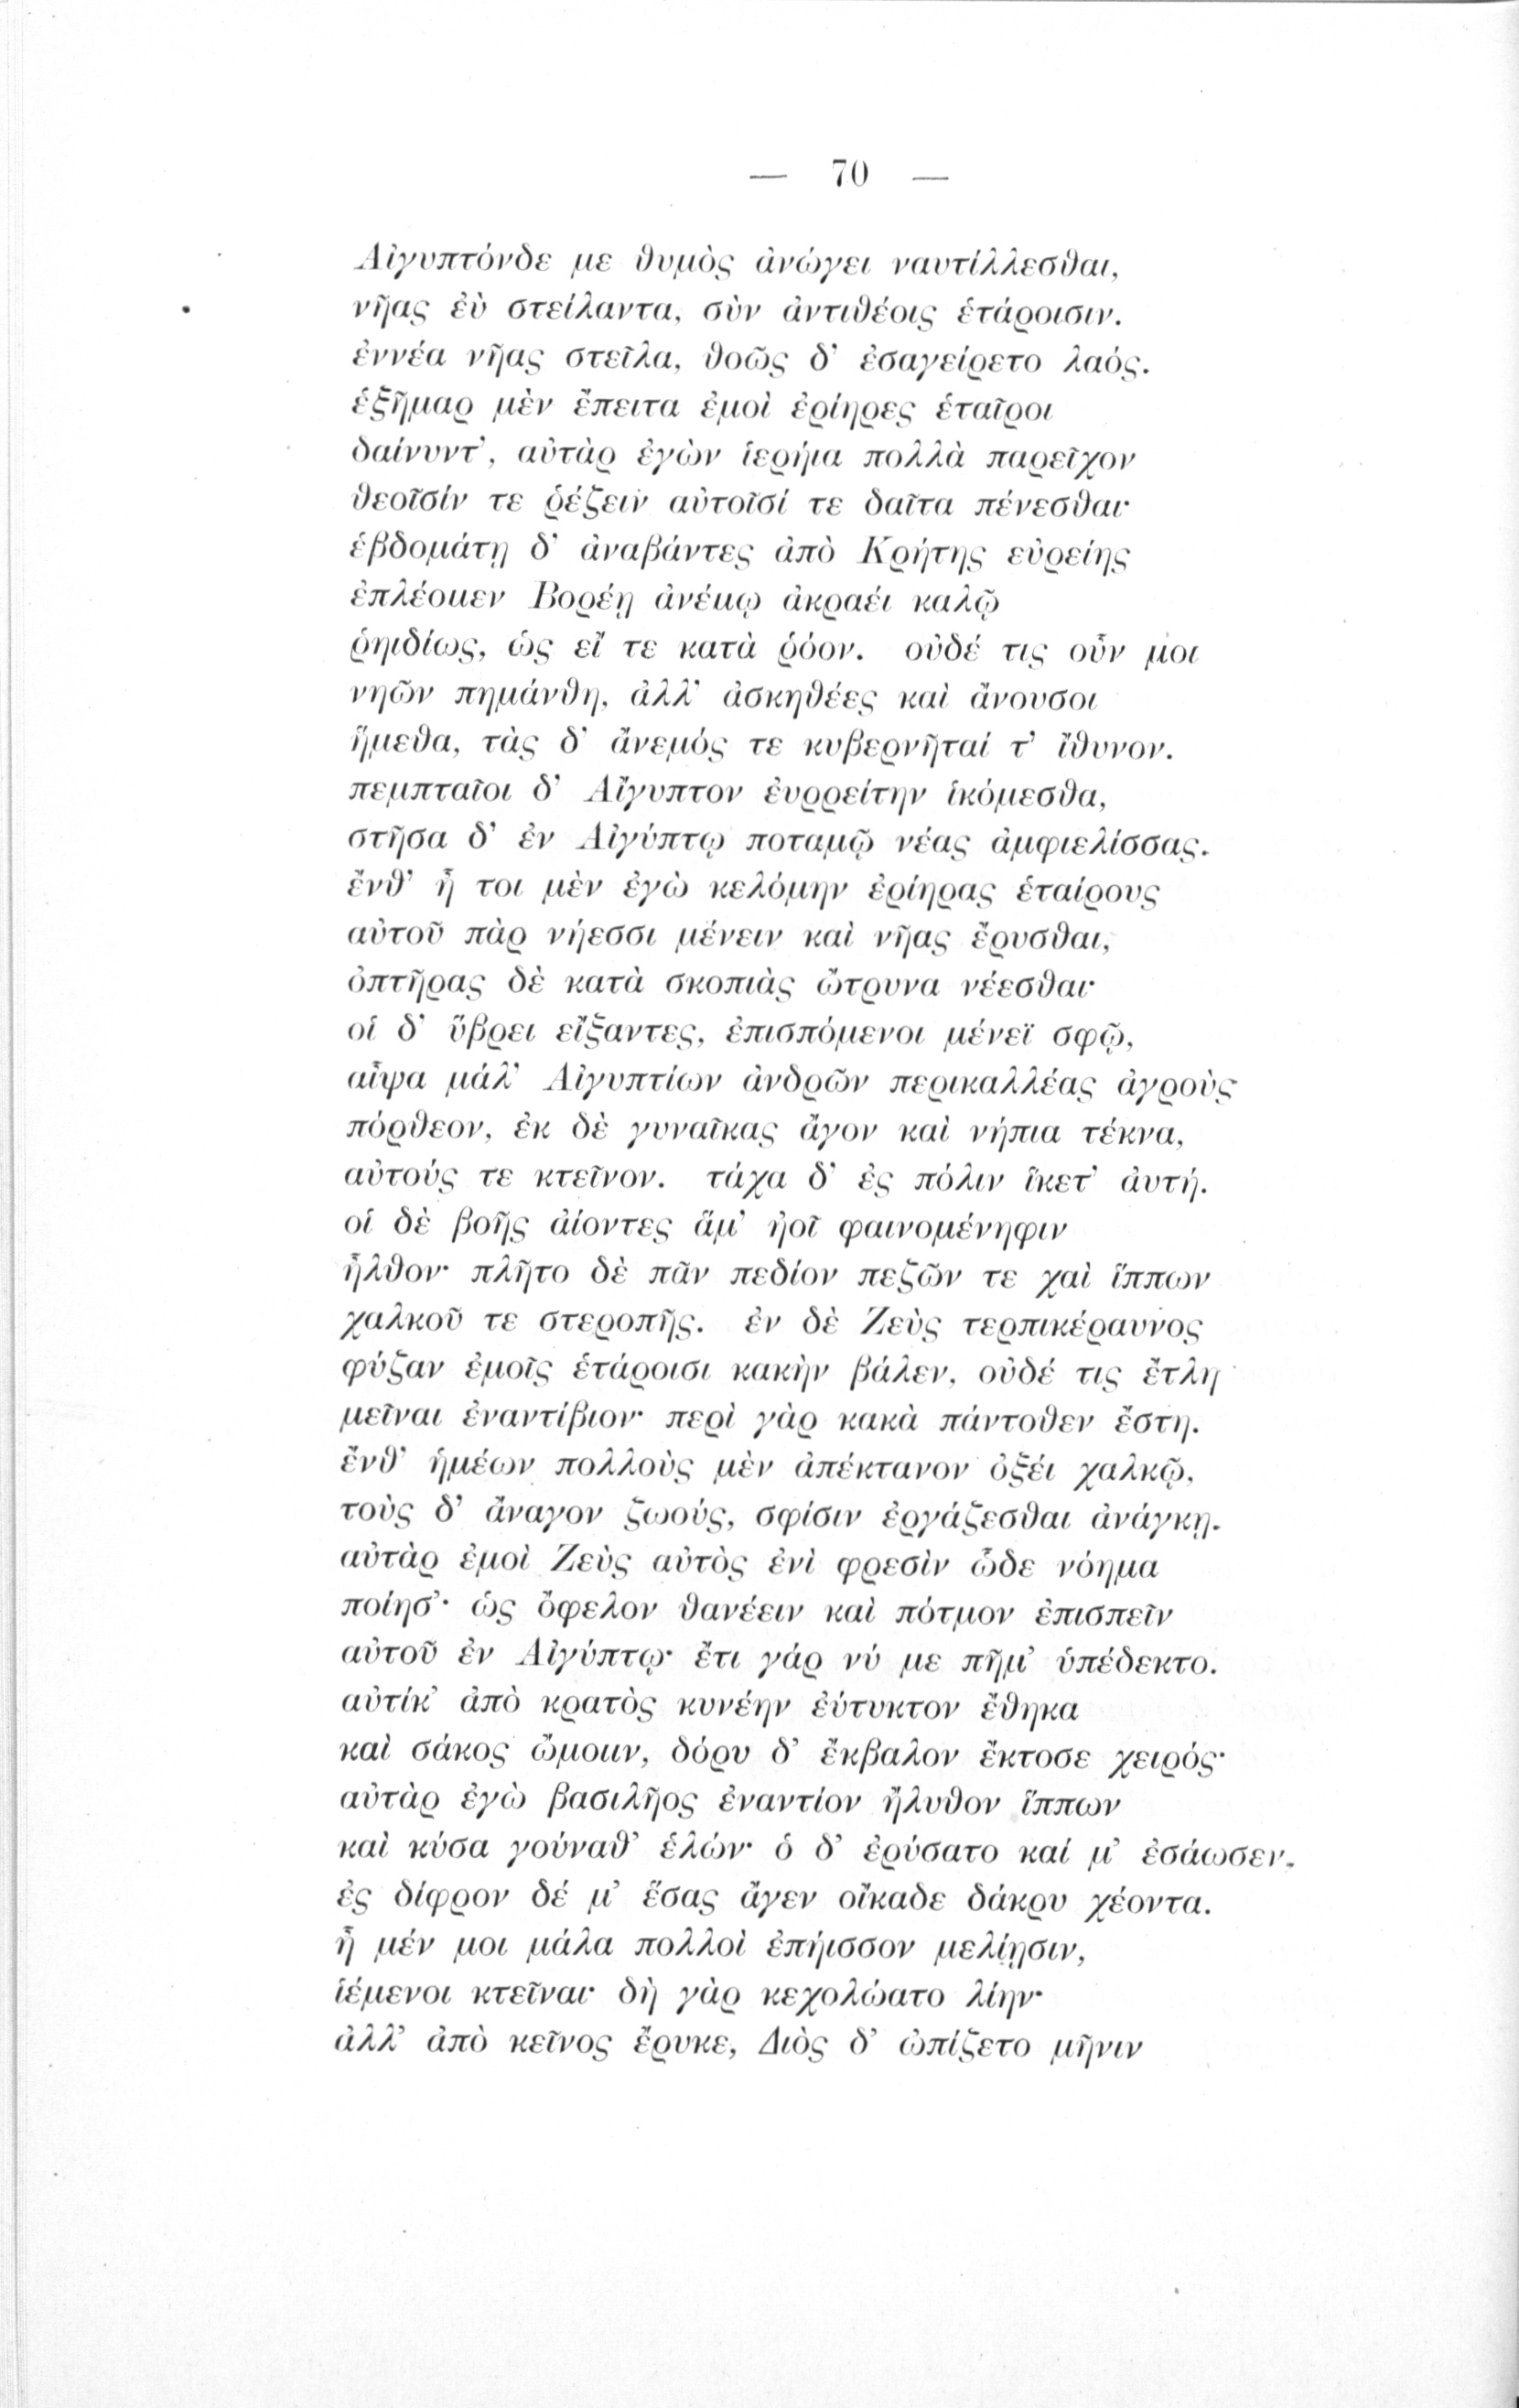 — 70 —
Αἰγυπτόνδε με θυμὸς ἀνώγει ναυτίλλεσθαι,
νῆας ἐὺ στείλαντα, σὺν ἀντιθέοις ἑτάροισιν.
ἐννέα νῆας στεῖλα, θοῶς δ' ἐσαγείρετο λαός.
ἑξῆμαρ μὲν ἔπειτα ἐμοὶ ἐρίηρες ἑταῖροι
δαίνυντ', αὐτὰρ ἐγὼν ἱερήια πολλὰ παρεῖχον
θεοῖσίν τε ῥέζειν αὐτοῖσί τε δαῖτα πένεσθαι·
ἑβδομάτῃ δ' ἀναβάντες ἀπὸ Κρήτης εὐρείης
ἐπλέομεν Βορέῃ ἀνέμῳ ἀκραέι καλῷ
ῥηιδίως, ὡς εἴ τε κατὰ ῥόον. οὐδέ τις οὖν μοι
νηῶν πημάνθη, ἀλλ' ἀσκηθέες καὶ ἄνουσοι
ἥμεθα, τὰς δ' ἄνεμός τε κυβερνῆταί τ' ἴθυνον.
πεμπταῖοι δ' Αἴγυπτον ἐυρρείτην ἱκόμεσθα,
στῆσα δ' ἐν Αἰγύπτῳ ποταμῷ νέας ἀμφιελίσσας.
ἔνθ' ἦ τοι μὲν ἐγὼ κελόμην ἐρίηρας ἑταίρους
αὐτοῦ πὰρ νήεσσι μένειν καὶ νῆας ἔρυσθαι,
ὀπτῆρας δὲ κατὰ σκοπιὰς ὤτρυνα νέεσθαι·
οἱ δ' ὕβρει εἴξαντες, ἐπισπόμενοι μένεϊ σφῷ,
αἶψα μάλ' Αἰγυπτίων ἀνδρῶν περικαλλέας ἀγροὺς
πόρθεον, ἐκ δὲ γυναῖκας ἄγον καὶ νήπια τέκνα,
αὐτούς τε κτεῖνον. τάχα δ' ἐς πόλιν ἵκετ' ἀυτή.
οἱ δὲ βοῆς ἀίοντες ἅμ' ἠοῖ φαινομένηφιν
ἦλθον· πλῆτο δὲ πᾶν πεδίον πεζῶν τε χαὶ ἵππων
χαλκοῦ τε στεροπῆς. ἐν δὲ Ζεὺς τερπικέραυνος
φύζαν ἐμοῖς ἑτάροισι κακὴν βάλεν, οὐδέ τις ἔτλη
μεῖναι ἐναντίβιον· περὶ γὰρ κακὰ πάντοθεν ἔστη.
ἔνθ' ἡμέων πολλοὺς μὲν ἀπέκτανον ὀξέι χαλκῷ,
τοὺς δ' ἄναγον ζωούς, σφίσιν ἐργάζεσθαι ἀνάγκῃ.
αὐτὰρ ἐμοὶ Ζεὺς αὐτὸς ἐνὶ φρεσὶν ὧδε νόημα
ποίησ'· ὡς ὄφελον θανέειν καὶ πότμον ἐπισπεῖν
αὐτοῦ ἐν Αἰγύπτῳ· ἔτι γάρ νύ με πῆμ' ὑπέδεκτο.
αὐτίκ' ἀπὸ κρατὸς κυνέην εὐτυκτον ἔθηκα
καὶ σάκος ὤμοιιν, δόρυ δ' ἔκβαλον ἔκτοσε χειρός·
αὐτὰρ ἐγὼ βασιλῆος ἐναντίον ἤλυθον ἵππων
καὶ κύσα γούναθ' ἑλών· ὁ δ' ἐρύσατο καί μ' ἐσάωσεν.
ἐς δίφρον δέ μ' ἕσας ἄγεν οἴκαδε δάκρυ χέοντα.
ἦ μέν μοι μάλα πολλοὶ ἐπήισσον μελίῃσιν,
ἱέμενοι κτεῖναι· δὴ γὰρ κεχολώατο λίην·
ἀλλ' ἀπὸ κεῖνος ἔρυκε, Διὸς δ' ὠπίζετο μῆνιν